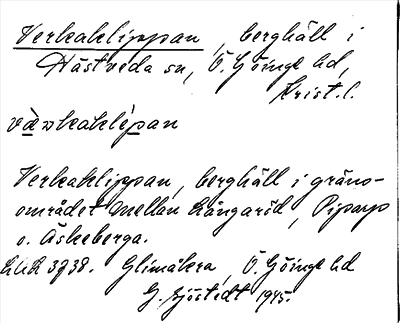 Verkaklippan, berghäll i
Hästveda sn, Ö. Göinge hd,
Krist. l.
væ̀rkaklépan
Verkaklippan, berghäll i gräns-
området mellan Långaröd, Piparp
o. Äskeberga.
LUA 3738. Glimåkra, Ö. Göinge hd
G. Sjöstedt 1945.